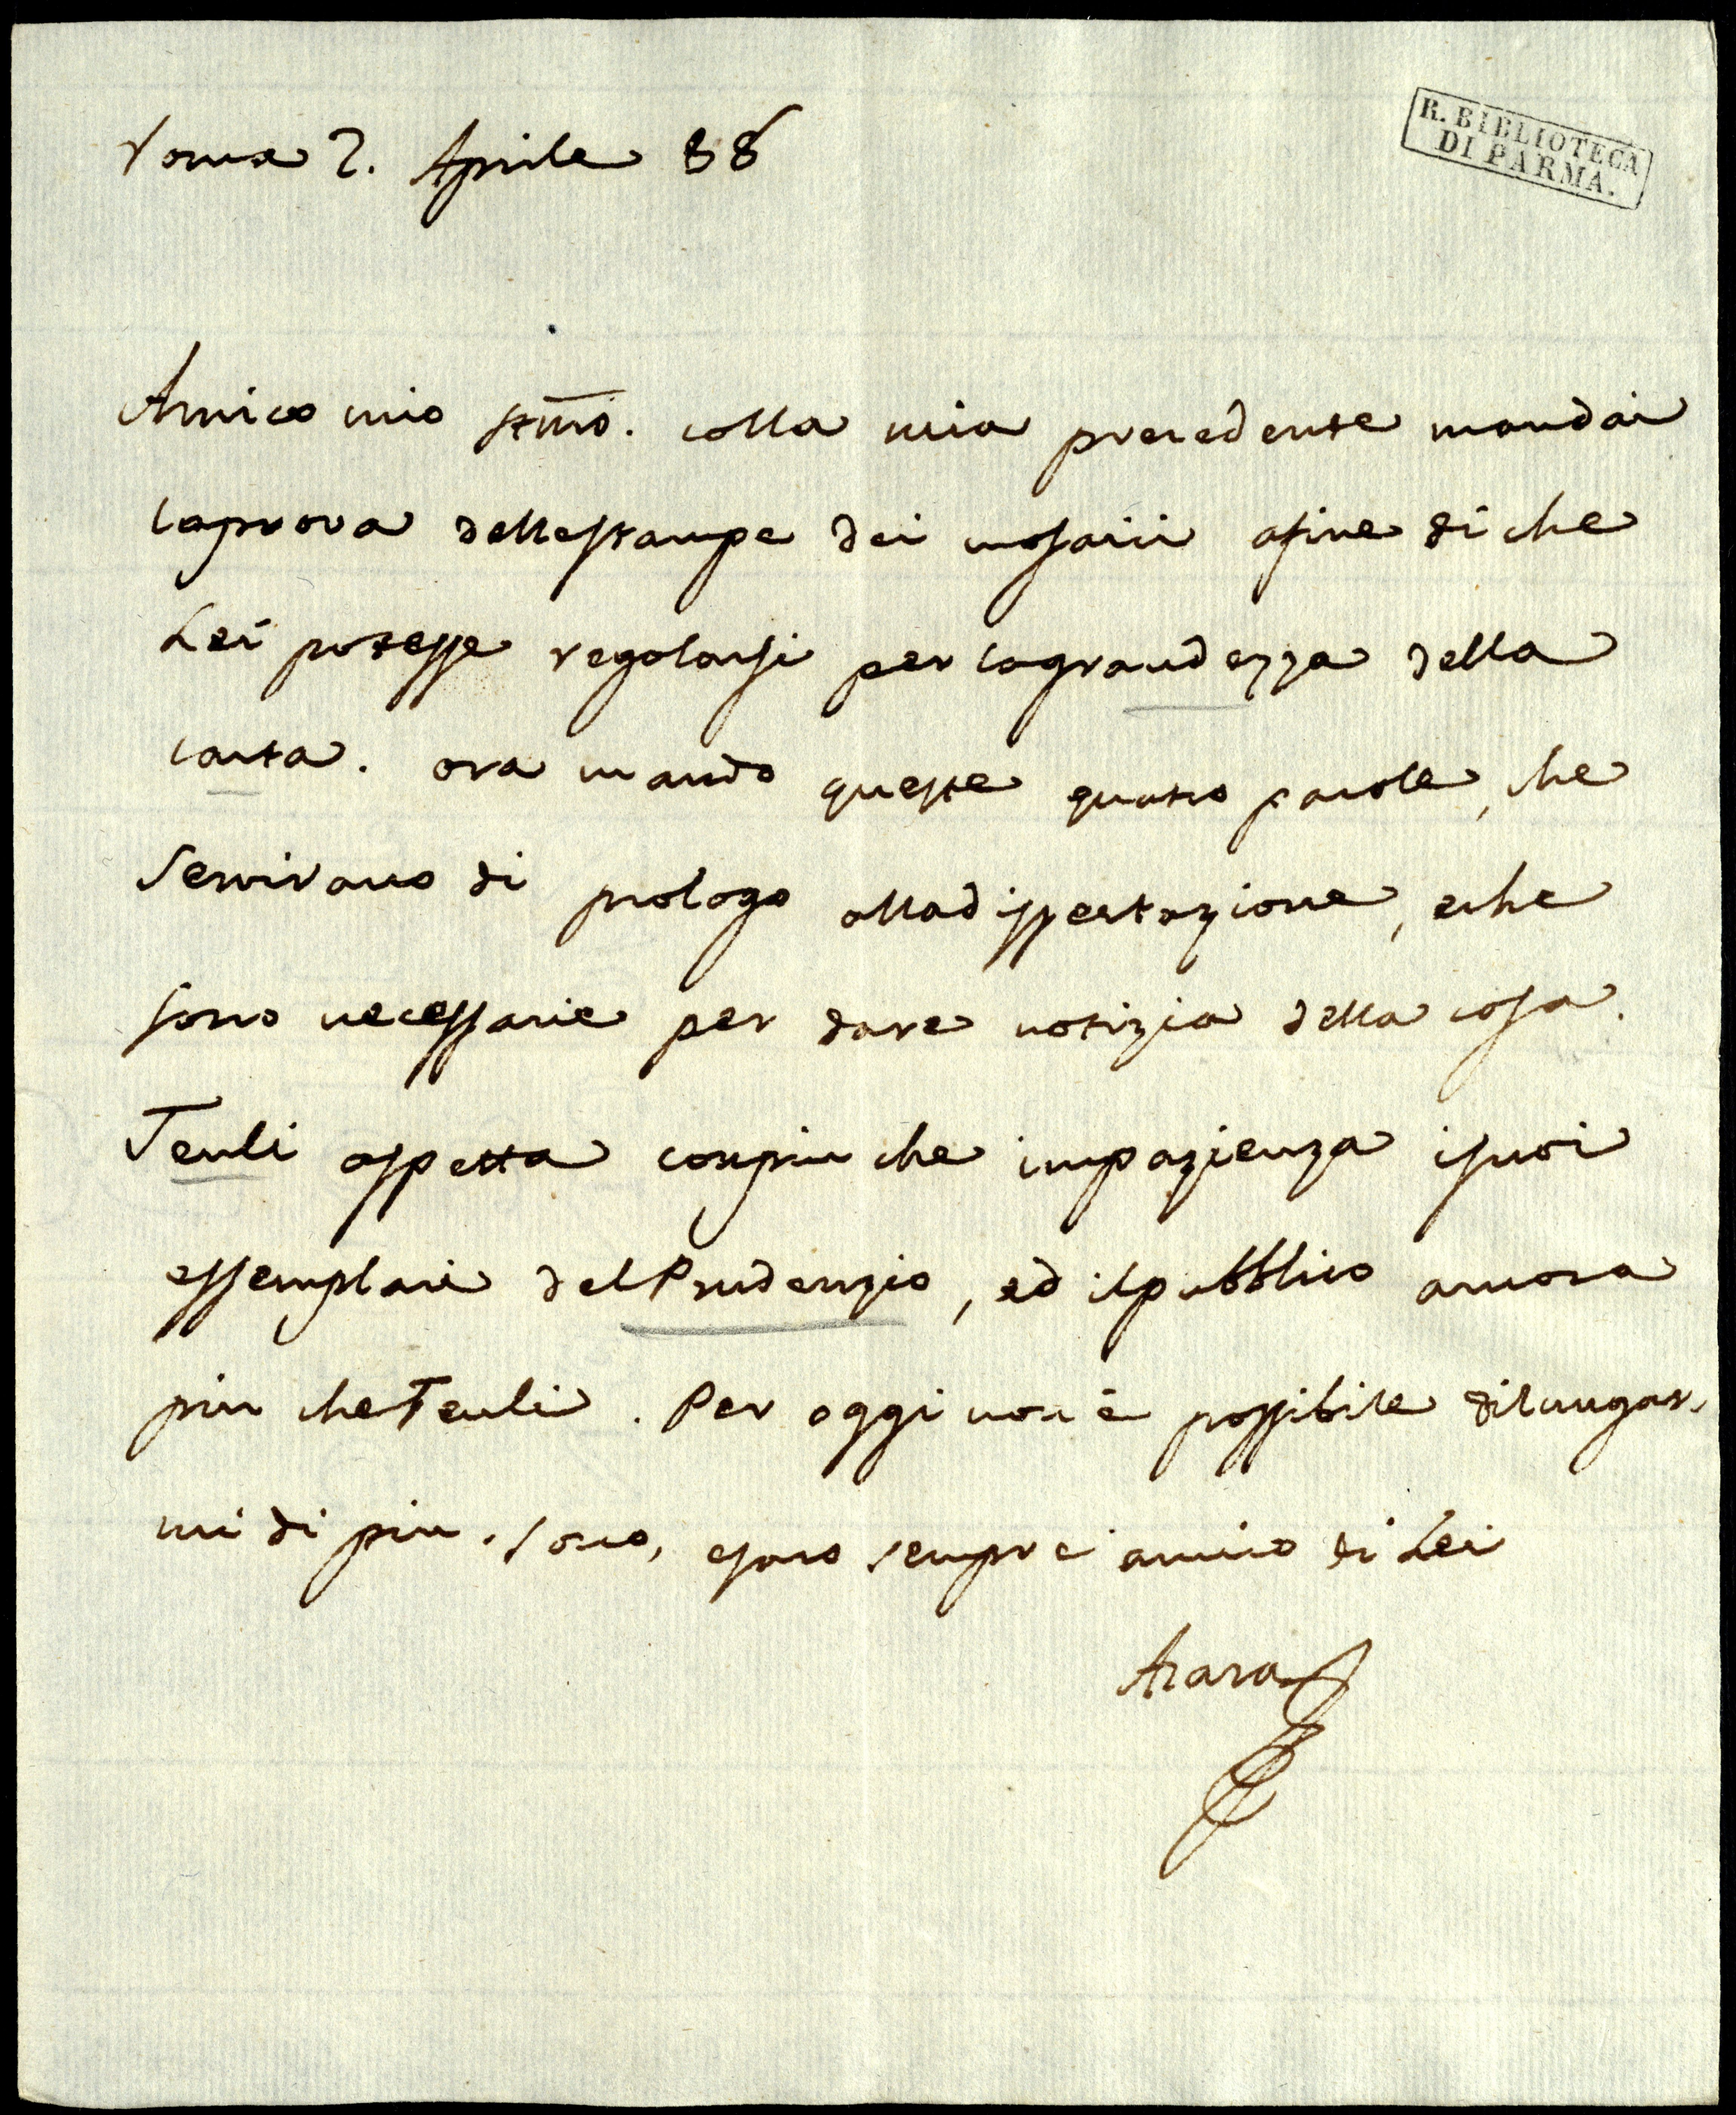 Roma 2. Aprile 88
R. BIBLIOTECA
DI PARMA.
Amico mio stm̄o. colla mia precedente mandai
la prova delle stampe dei mosaici afine di che
Lei potesse regolarsi per la grandezza della
carta. ora mando queste quatro parole, che
servirano di prologo alla dissertazione, e che
sono necessarie per dare notizia della cosa.
Teuli aspetta con piu che impazienza i suoi
essemplari del Prudenzio, ed il pubblico ancora
piu che Teuli. Per oggi non è possibile dilungar-
mi di piu. sono, e saro sempre amico di Lei
Azara